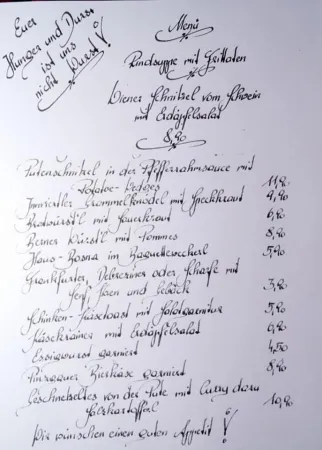 Euer
Hunger und Durst
ist uns
nicht Wurst!
Menü
Rindsuppe mit Frittaten
Wiener Schnitzel vom Schwein
mit Erdäpfelsalat
8,90
Putenschnitzel in der Pfefferrahmsauce mit
Potatoe-Wedges 11,90
Innviertler Grammelknödel mit Speckkraut 9,90
Bratwürstl mit Sauerkraut 6,90
Berner Würstl mit Pommes 8,90
Haus-Bosna im Baguetteweckerl 5,90
Frankfurter, Debreziner oder Scharfe mit
Senf, Kren und Gebäck 3,90
Schinken-Käsetoast mit Salatgarnitur 5,90
Käsekrainer mit Erdäpfelsalat 6,90
Essigwurst garniert 4,50
Pinzgauer Bierkäse garniert 8,90
Geschnetzeltes von der Pute mit Curry dazu
Salzkartofferl 10,90
Wir wünschen einen guten Appetit!